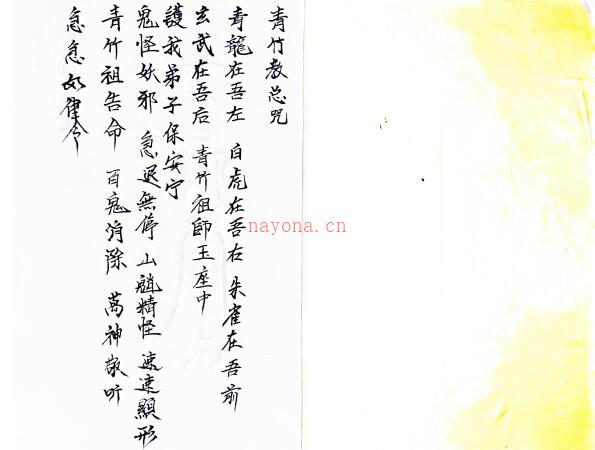 青竹教总咒
青龍在吾左 白虎在吾右 朱雀在吾前
玄武在吾后 青竹祖師玉座中
護我弟子保安宁
鬼怪妖邪 急退無停 山魈精怪 速速顯形
青竹祖告命 百鬼消除 萬神敬听
急急如律令
nayona.cn